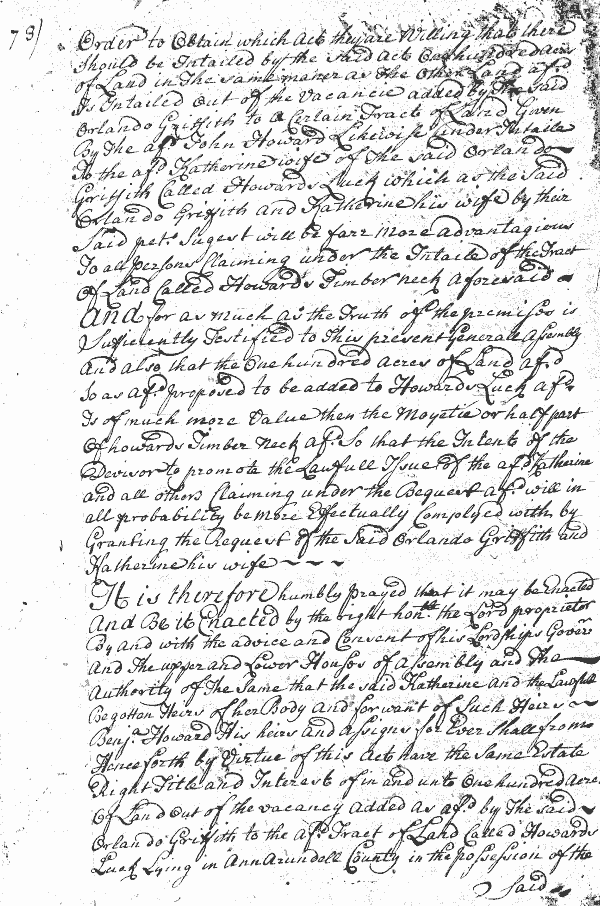 78)
Order to Obtain which Act they are Willing that there
Should be Intailed by the Said Act One hundred acres
of Land in The same maner as the Other Land afsd
Is Intailed Out of the Vacancie added by The Said
Orlando Griffith to a Certain Tract of Land Given
By The afd John Howard Likewise under Intaile
To the afd Katherine wife of the said Orlando
Griffith Called Howards Luck which as the Said
Orlando Griffith and Katherine his wife by their
Said petn Sugest will be farr more advantagious
To all persons Claiming under the Intaile of the Tract
Of Land Called Howards Timber neck aforesaid
And for as much as the Truth of the premises is
Sufficiently Testified to This present Generall Assembly
And also that the One hundred acres of Land afsd
So as afd proposed to be added to Howards Luck afd
Is of much more Value then the Moyetie or half part
Of howards Timber Neck afd So that the Intent of the
Devisor to promote the Lawfull Issue of the afd Katherine
and all others Claiming under the Bequest afd will in
all probability be more Effectually Complyed with by
Granting the Request of the Said Orlando Griffith and
Katherine his wife
It is therefore humbly prayed that it may be Enacted
And Be it Enacted by the right honble the Lord proprietor
By and with the advice and Consent of his Lordships Goverr
And The upper and Lower Houses of Assembly and The
Authority of The Same that the said Katherine and the Lawfull
Begotten Heirs of her Body and for want of Such Heirs
Benja Howard His heirs And assigns for Ever Shall from
Henceforth by Virtue of this Act have the Same Estate
Right Title and Interest of in and unto One hundred acres
Of Land Out of the vacancy added as afd by The said
Orlando Griffith to the afd Tract of Land Called Howards
Luck Lying in Ann Arundell County in the possession of the
said